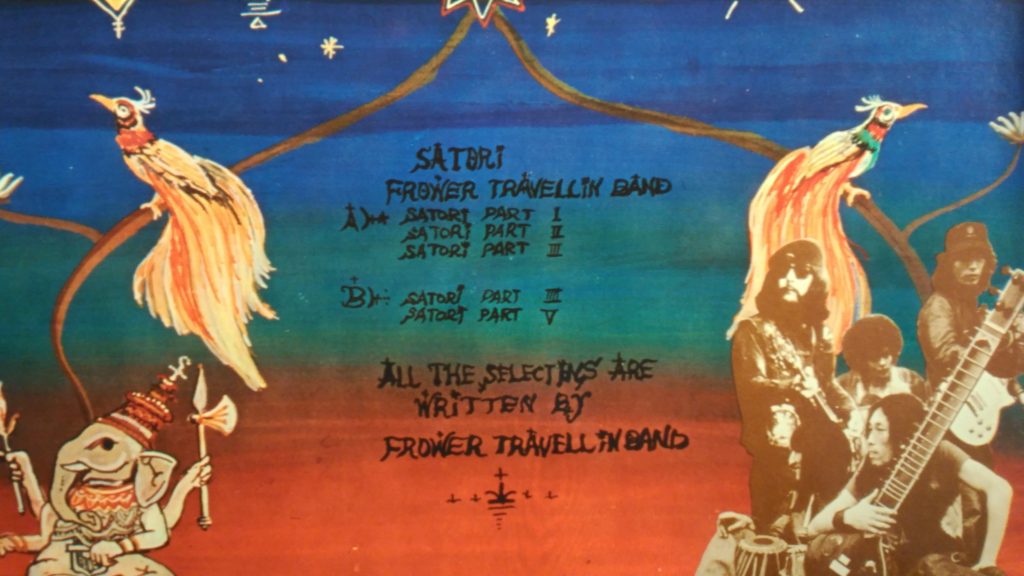 SATORI
FROWER TRAVELLIN BAND
A) SATORI PART I
SATORI PART II
SATORI PART III
B) SATORI PART IIII
SATORI PART V
ALL THE SELECTINGS ARE
WRITTEN BY
FROWER TRAVELLIN BAND